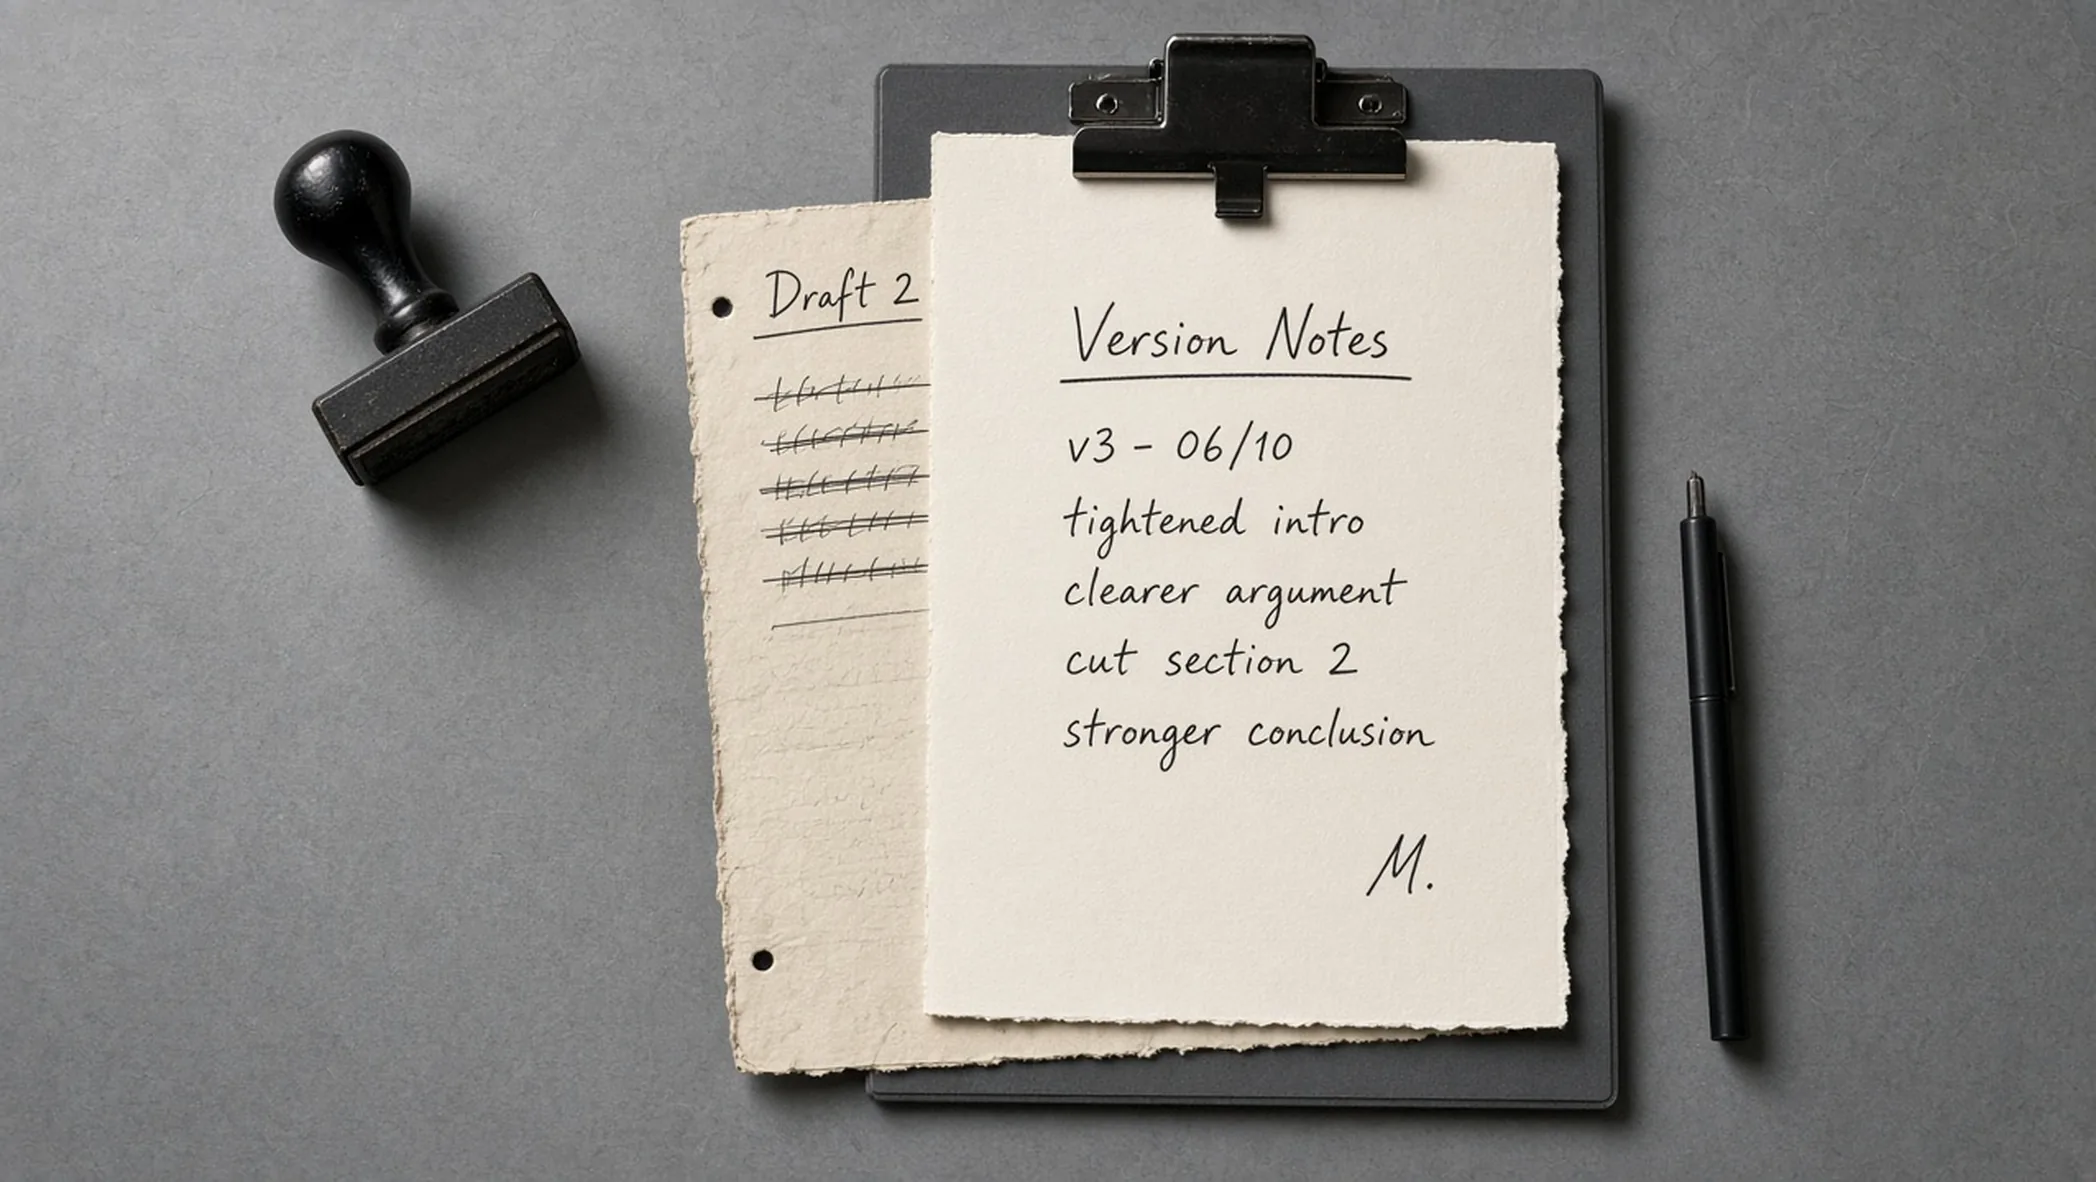 Draft 2
Version Notes
v3 - 06/10
tightened intro
clearer argument
cut section 2
stronger conclusion
M.